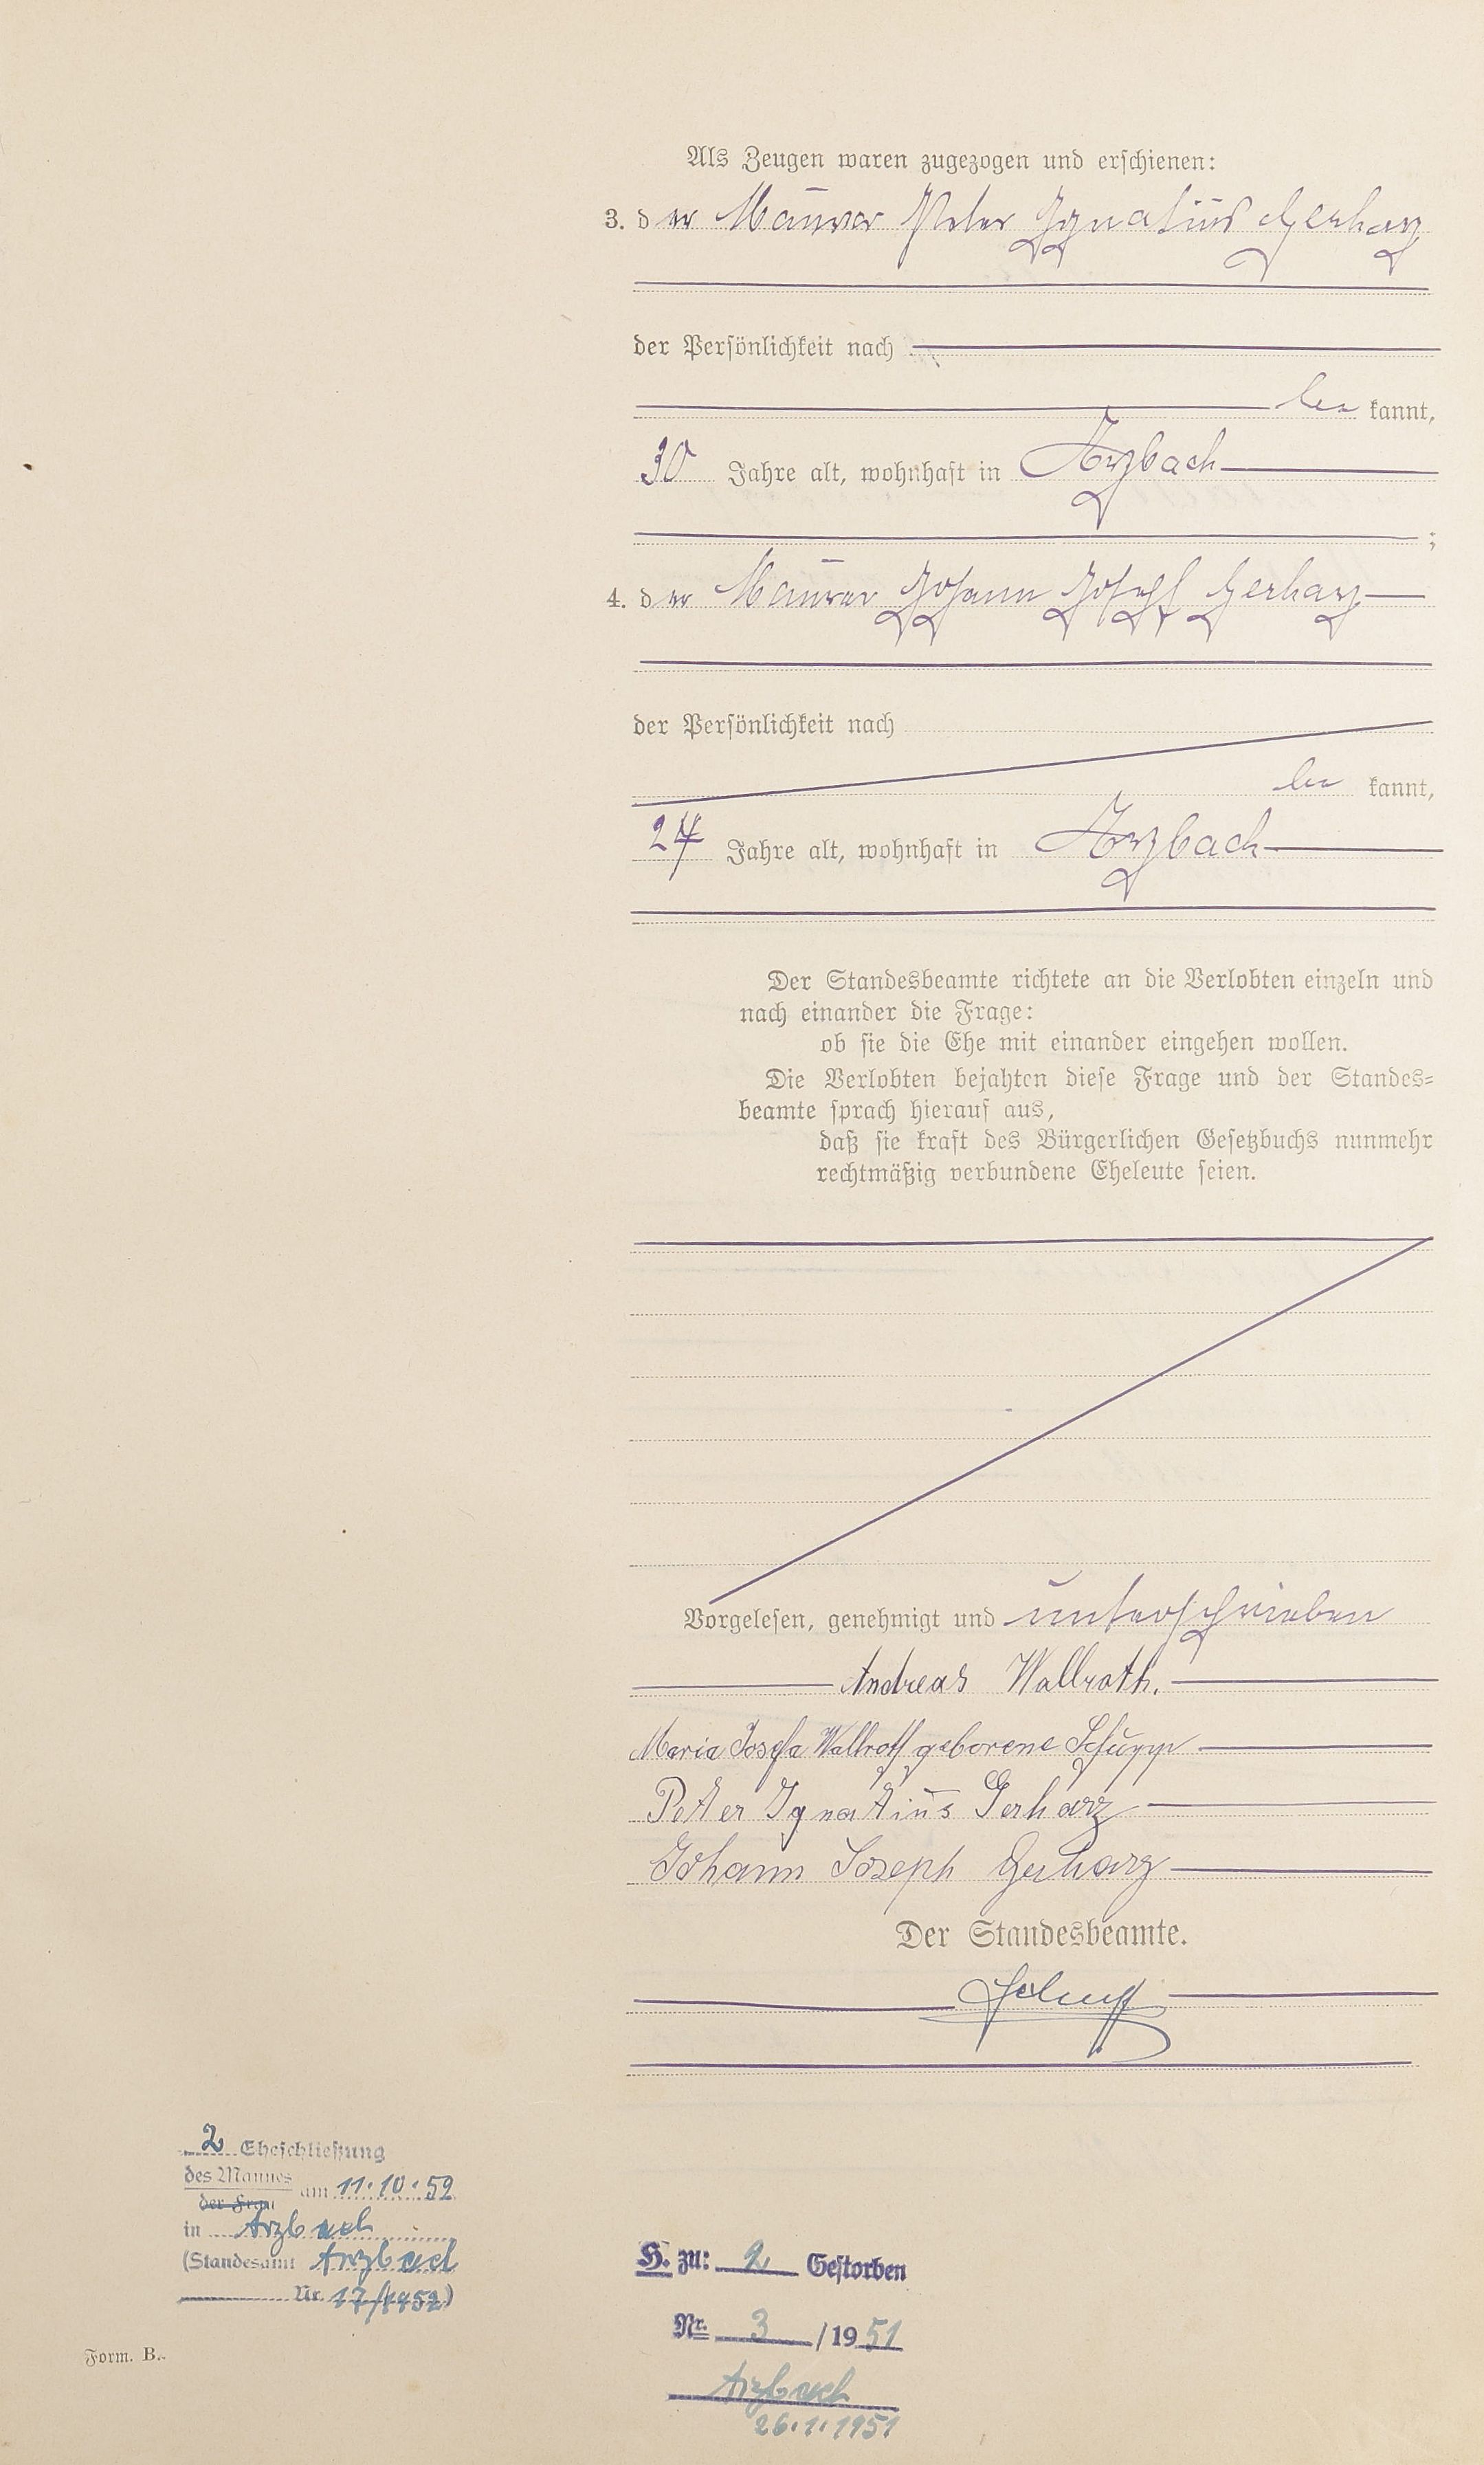 Als Zeugen waren zugezogen und erschienen:
3. der Maurer Peter Ignatius Gerharz
der Persönlichkeit nach
be kannt,
30 Jahre alt, wohnhaft in Arzbach
;
4. der Maurer Johann Joseph Gerharz
der Persönlichkeit nach
be kannt,
24 Jahre alt, wohnhaft in Arzbach
Der Standesbeamte richtete an die Verlobten einzeln und
nach einander die Frage:
ob sie die Ehe mit einander eingehen wollen.
Die Verlobten bejahten diese Frage und der Standes=
beamte sprach hierauf aus,
daß sie kraft des Bürgerlichen Gesetzbuchs nunmehr
rechtmäßig verbundene Eheleute seien.
Vorgelesen, genehmigt und unterschrieben
Andreas Wallroth.
Maria Josefa Wallroth geborene Schupp
Peter Ignatius Gerharz
Johann Joseph Gerharz
Der Standesbeamte.
2 Eheschließung
des Mannes
der Frau
am 11.10.52
in Arzbach
(Standesamt Arzbach
Nr. 17/1952)
H. zu: 2 Gestorben
Nr. 3 /1951
Arzbach
26.1.1951
Form. B.